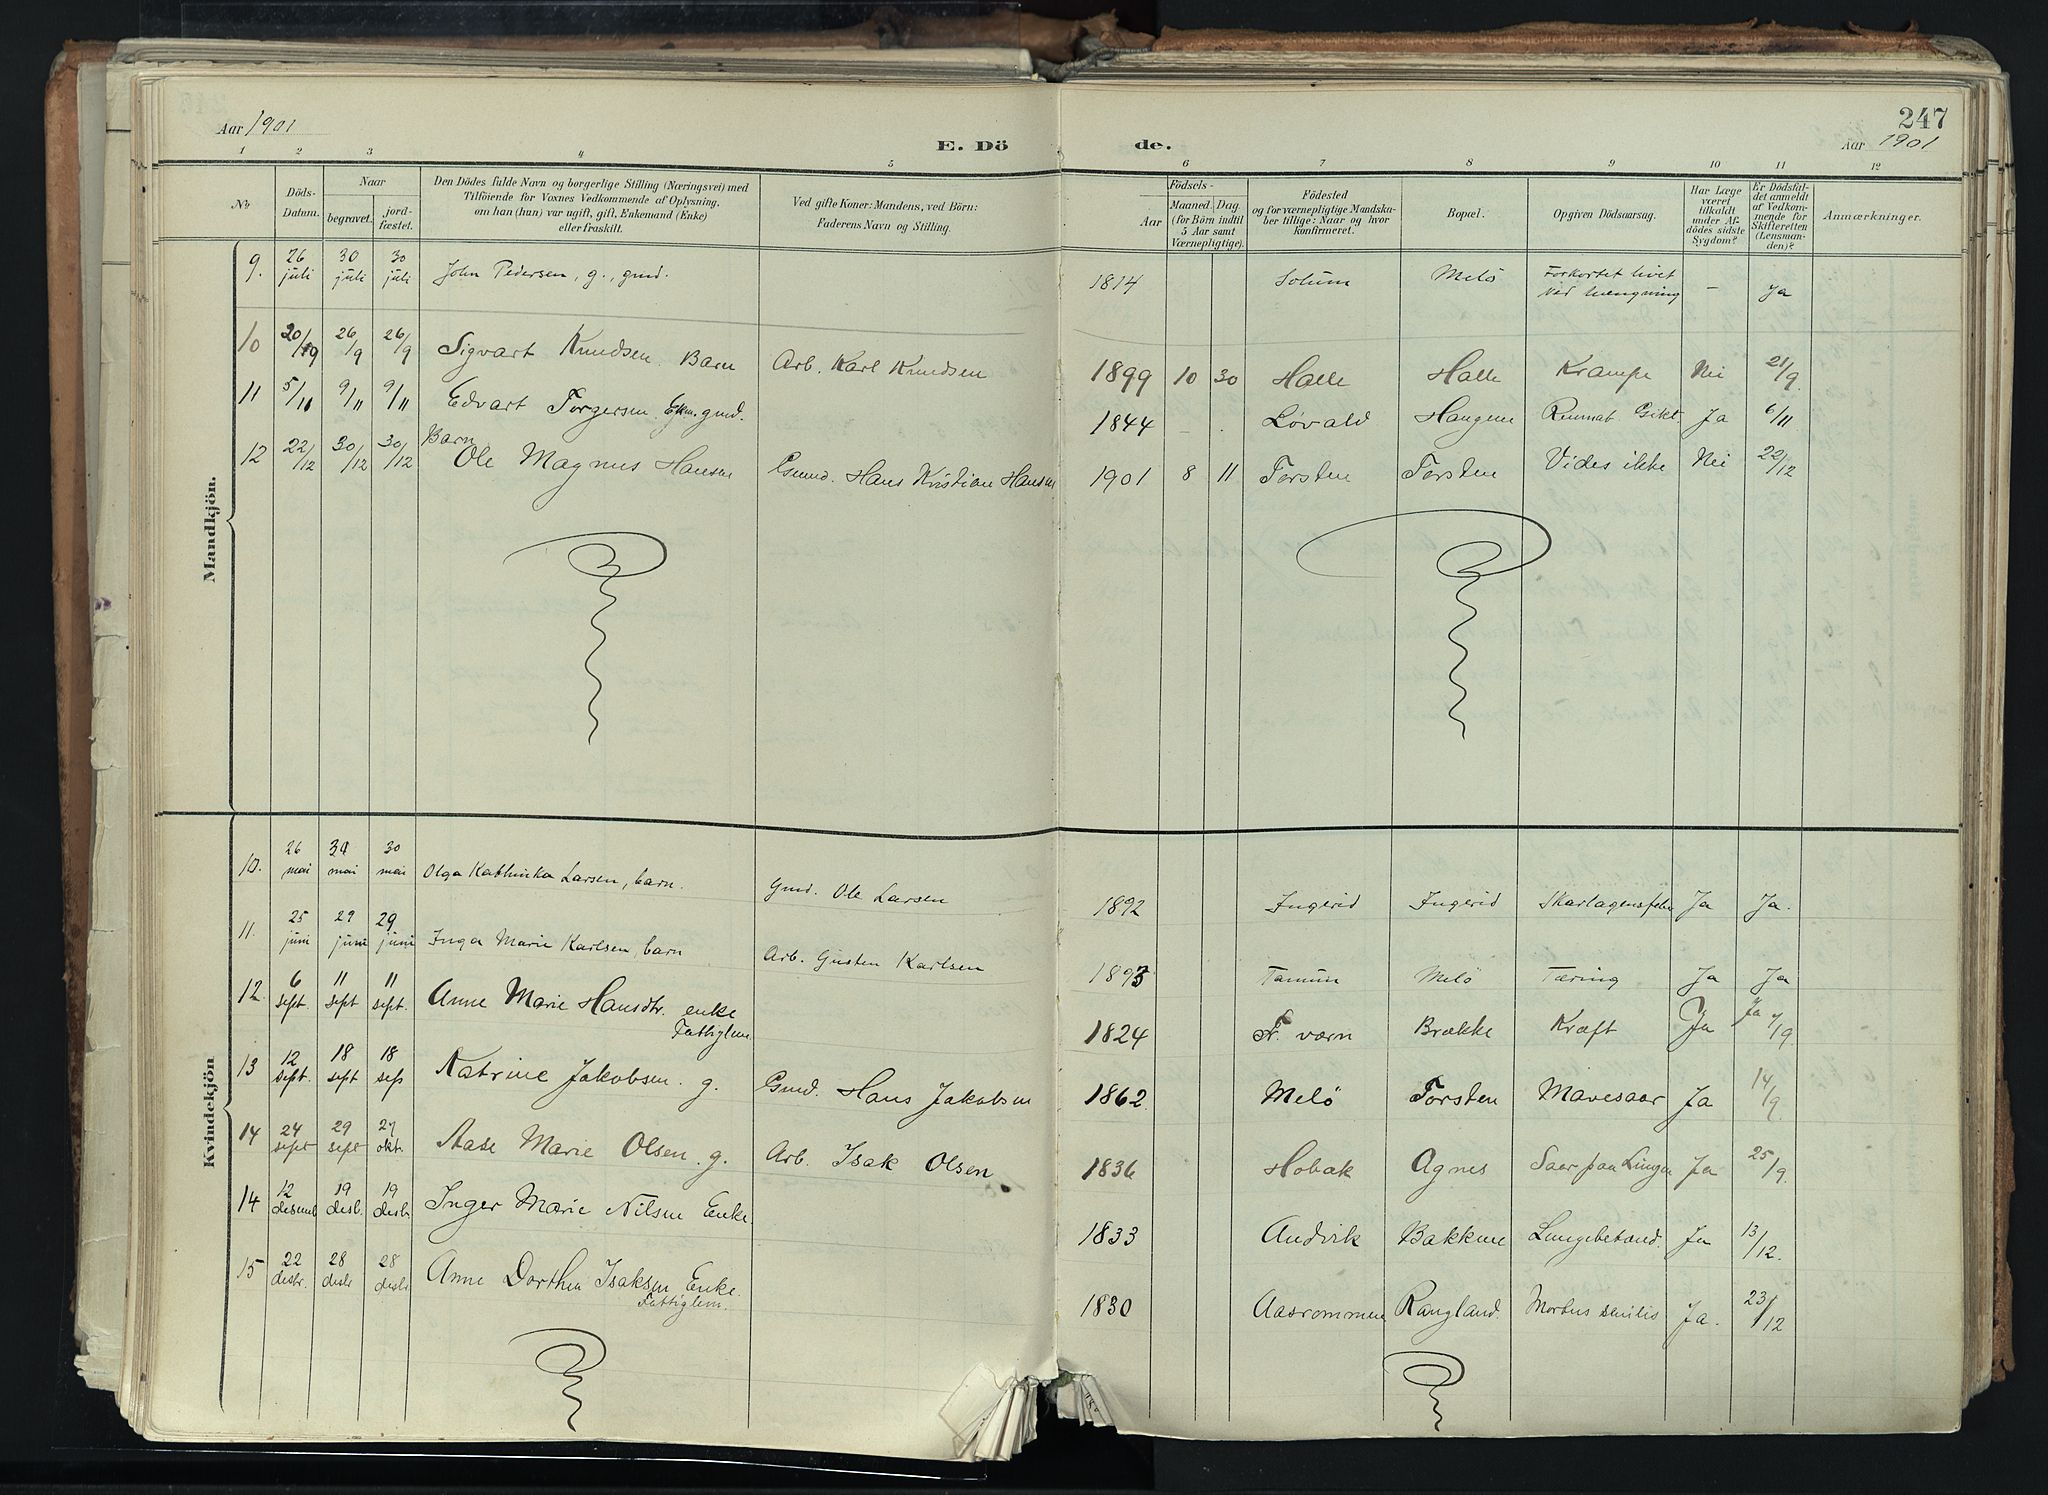 Aar 1901
E. Dö
de.
247
Aar 1901
1 2 3 4 5 6 7 8 9 10 11 12
No
Döds-
Datum.
Naar
begravet.
jord-
fæstet.
Den Dödes fulde Navn og borgerlige Stilling (Næringsvei) med
Tilföiende for Voxnes Vedkommende af Oplysning,
om han (hun) var ugift, gift, Enkemand (Enke)
eller fraskilt.
Ved gifte Koner: Mandens, ved Börn:
Faderens Navn og Stilling.
Födsels-
Aar
Maaned. Dag.
(for Börn indtil
5 Aar samt
Værnepligtige).
Födested
og for værnepligtige Mandska-
ber tillige: Naar og hvor
konfirmeret.
Bopæl.
Opgiven Dödsaarsag.
Har Læge
været
tilkaldt
under Af-
dödes sidste
Sygdom?
Er Dödsfal-
det anmeldt
af Vedkom-
mende for
Skifteretten
(Lensman-
den)?
Anmærkninger.
Mandkjön.
9. 26 juli 30 juli 30 juli John Pedersen, g., gmd. 1814 Solum Melö Forkortet livet ved hængning – Ja
10 20/9 26/9 26/9 Sigvart Knudsen. Barn Arb. Karl Knudsen 1899 10 30 Halle Halle Krampe Nei 21/9.
11 5/11 9/11 9/11 Edvart Torgersen. Ekm. gmd. 1844 – . Lövald Haugene Rumat. Gikt. Ja 6/11
12 22/12 30/12 30/12 Barn Ole Magnus Hansen Gmd. Hans Kristian Hansen 1901 8 11 Torsten Torsten Vides ikke Nei 22/12
Kvindekjön
10. 26 mai 30 mai 30 mai Olga Kathinka Larsen, barn. Gmd. Ole Larsen 1892 Ingerid Ingerid Skarlagensfeber Ja Ja.
11. 25 juni 29 juni 29 juni Inga Marie Karlsen, barn Arb. Gusten Karlsen 1893 Tanum Melö Tæring Ja Ja
12. 6 sept. 11 sept 11 sept. Anne Marie Hansdtr. enke Fattiglem 1824 Fr. værn Brække Kræft Ja Ja 7/9.
13 12 sept. 18 sept 18 sep Katrine Jakobsen. g. Gmd. Hans Jakobsen 1862. Melö Torsten Mavesaar Ja 14/9.
14 24 sept 29 sept 27 okt. Aase Marie Olsen. g. Arb. Isak Olsen 1836 Hobæk Agnes Saar paa Lunger Ja 25/9.
14 12 desemb 19 desb. 19 desb. Inger Marie Nilsen Enke. 1833 Andvik Bakkene Lungebetænd. Ja 13/12.
15 22 desbr. 28 desbr 28 desbr Anne Dorthea Isaksen Enke. Fattiglem. 1830 Aasrommen Rangland. Morbus senilis Ja. 23/12